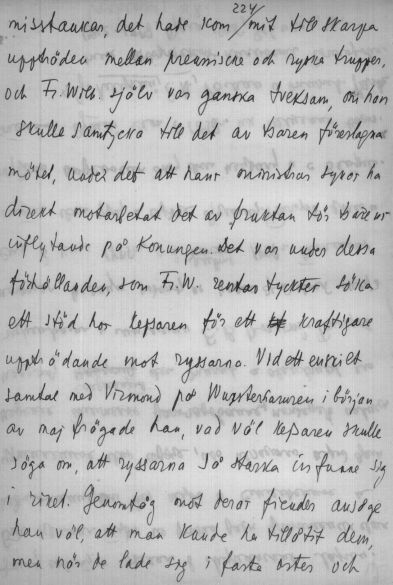 224/
misstankar, det hade kommit till skarpa
uppträden mellan preussiske och ryska trupper,
och Fr. Wilh. själv var ganska tveksam, om han
skulle samtycka till det av tsaren föreslagna
mötet, under det att hans ministrar synas ha
direkt motarbetat det av fruktan för tsarens
inflytande på Konungen. Det var under dessa
förhållanden, som Fr. W. tyckter söka
ett stöd hos kejsaren för ett kraftigare
uppträdande mot ryssarna. Vid ett enskilt
samtal med Virmond på Wusterhausen i början
av maj frågade han, vad väl kejsaren skulle
säga om, att ryssarna så starka infunne sig
i riket. Genomtåg mot deras fiender ansåge
han väl, att man kunde ha tillåtit dem,
men när de lade sig i fasta orter och